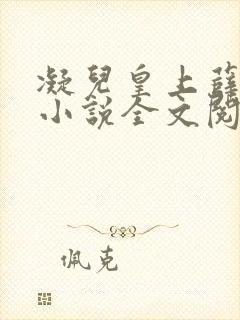 凝兒皇上薛
小説全文閱
佩克